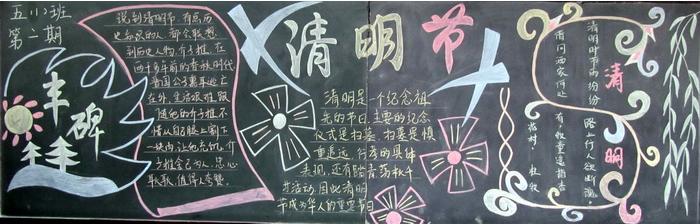 五(1)班
第二期
丰碑
说到清明节,有点历
史知识的人,都会联想
到历史人物介子推。在
两千多年前的春秋时代
晋国公子重耳逃亡
在外,生活艰难,跟
随他的介子推不
惜从自己腿上割下
一块肉让他充饥,介
子推舍己为人,忠心
耿耿,值得人夸赞。
清明节
清明是一个纪念祖
先的节日,主要的纪念
仪式是扫墓,扫墓是慎
重追远、行孝的具体
表现,还有踏青荡秋千
等活动,因此清明
节成为华人的重要节日
清明
清明时节雨纷纷
路上行人欲断魂
借问酒家何处
有牧童遥指杏
花村 杜牧